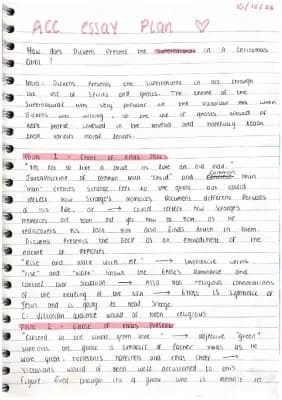 10/12/23
ACC essay Plan
How does Dickens present the supernatural in A Christmas
Carol?
Intro: Dickens presents the supernatural in ACC through
the use of spirits and ghosts. The genre of the
supernatural was very popular in the Victorian era when
Dickens was writing, so the use of ghosts would of
kept people invested in the novella and hopefully teach
them various moral lessons.
Point 1 - Ghost of Xmas Past
"Yet not so like a child as like an old man."
Juxtaposition of common noun "child" and common noun
"man" creates strange feel to the ghost but could
reflect how Scrooge's memories document different periods
of his life, or → could reflect how Scrooge's
memories are from old yet now to him as he
rediscovers his past but also finds truth in them.
Dickens presents the GOCP as an embodiment of the
nature of memories
"Rise and walk with me." → imperative verbs
"rise" and "walk" shows the ghost's dominance and
control over situation → Also has religious connotations
of the healing of the sick → ghost is symbolic of
Jesus and is going to heal Scrooge
C: Victorian audience would of been religious
Point 2 - Ghost of Xmas Present
"Clothed in one simple green robe" → adjective "green"
shows the ghost is symbolic of Father Xmas as he
wore green, represents happiness and Xmas cheer →
Victorians would of been well accustomed to this
figure. Even though its a ghost who is meant to